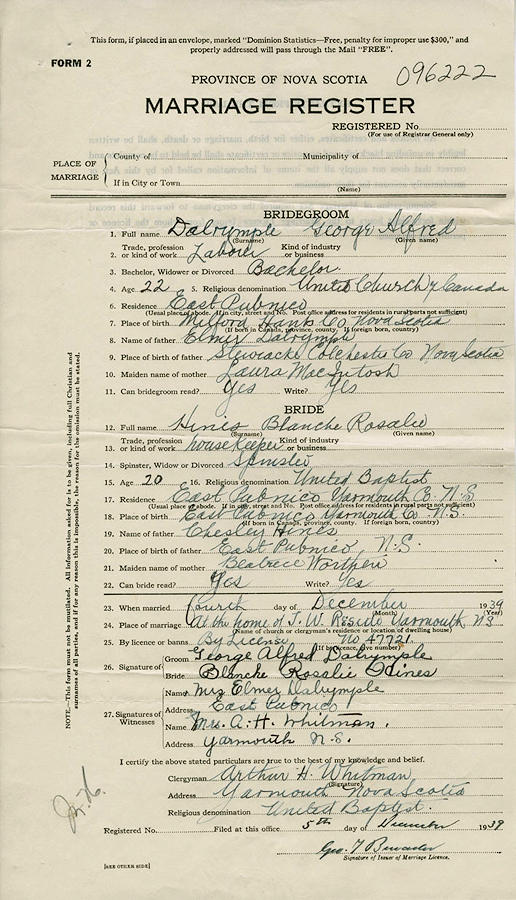 This form, if placed in an envelope, marked "Dominion Statistics—Free, penalty for improper use $300," and
properly addressed will pass through the Mail "FREE".
FORM 2
PROVINCE OF NOVA SCOTIA
096222
MARRIAGE REGISTER
REGISTERED No.
(For use of Registrar General only)
PLACE OF MARRIAGE
County of Municipality of
If in City or Town
(Name)
BRIDEGROOM
1. Full name Dalrymple George Alfred
(Surname) (Given name)
2. Trade, profession or kind of work Labour Kind of industry or business
3. Bachelor, Widower or Divorced Bachelor
4. Age 22 5. Religious denomination United Church of Canada
6. Residence East Pubnico
(Usual place of abode. If in city, street and No. Post office address for residents in rural parts not sufficient)
7. Place of birth Milford Hants Co Nova Scotia
(If born in Canada, province, county. If foreign born, country)
8. Name of father Elmer Dalrymple
9. Place of birth of father Stewiacke Colchester Co Nova Scotia
10. Maiden name of mother Laura MacIntosh
11. Can bridegroom read? Yes Write? Yes
BRIDE
12. Full name Hines Blanche Rosalie
(Surname) (Given name)
13. Trade, profession or kind of work housekeeper Kind of industry or business
14. Spinster, Widow or Divorced Spinster
15. Age 20 16. Religious denomination United Baptist
17. Residence East Pubnico Yarmouth Co. N.S
(Usual place of abode. If in city, street and No. Post office address for residents in rural parts not sufficient)
18. Place of birth East Pubnico Yarmouth Co N.S.
(If born in Canada, province, county. If foreign born, country)
19. Name of father Chesley Hines
20. Place of birth of father East Pubnico, N.S.
21. Maiden name of mother Beatrice
22. Can bride read? Yes Write? Yes
23. When married fourth day of December 1939
(Month) (Year)
24. Place of marriage At the home of Yarmouth NS
(Name of church or clergyman's residence or location of dwelling house)
25. By licence or banns By License No 47721
(If by licence, give number)
26. Signature of
Groom George Alfred Dalrymple
Bride Blanche Rosalie Hines
27. Signatures of Witnesses
Name Mrs Elmer Dalrymple
Address East Pubnico
Name Mrs. A. H. Whitman.
Address Yarmouth N.S.
I certify the above stated particulars are true to the best of my knowledge and belief.
Clergyman Arthur H. Whitman
(Signature)
Address Yarmouth Nova Scotia
Religious denomination United Baptist.
Registered No. Filed at this office 5th day of December 1939
Geo.
Signature of Issuer of Marriage Licence.
[SEE OTHER SIDE]
NOTE.—This form must not be mutilated. All information asked for is to be given, including full Christian and
surnames of all parties, and if for any reason this is impossible, the reason for the omission must be stated.